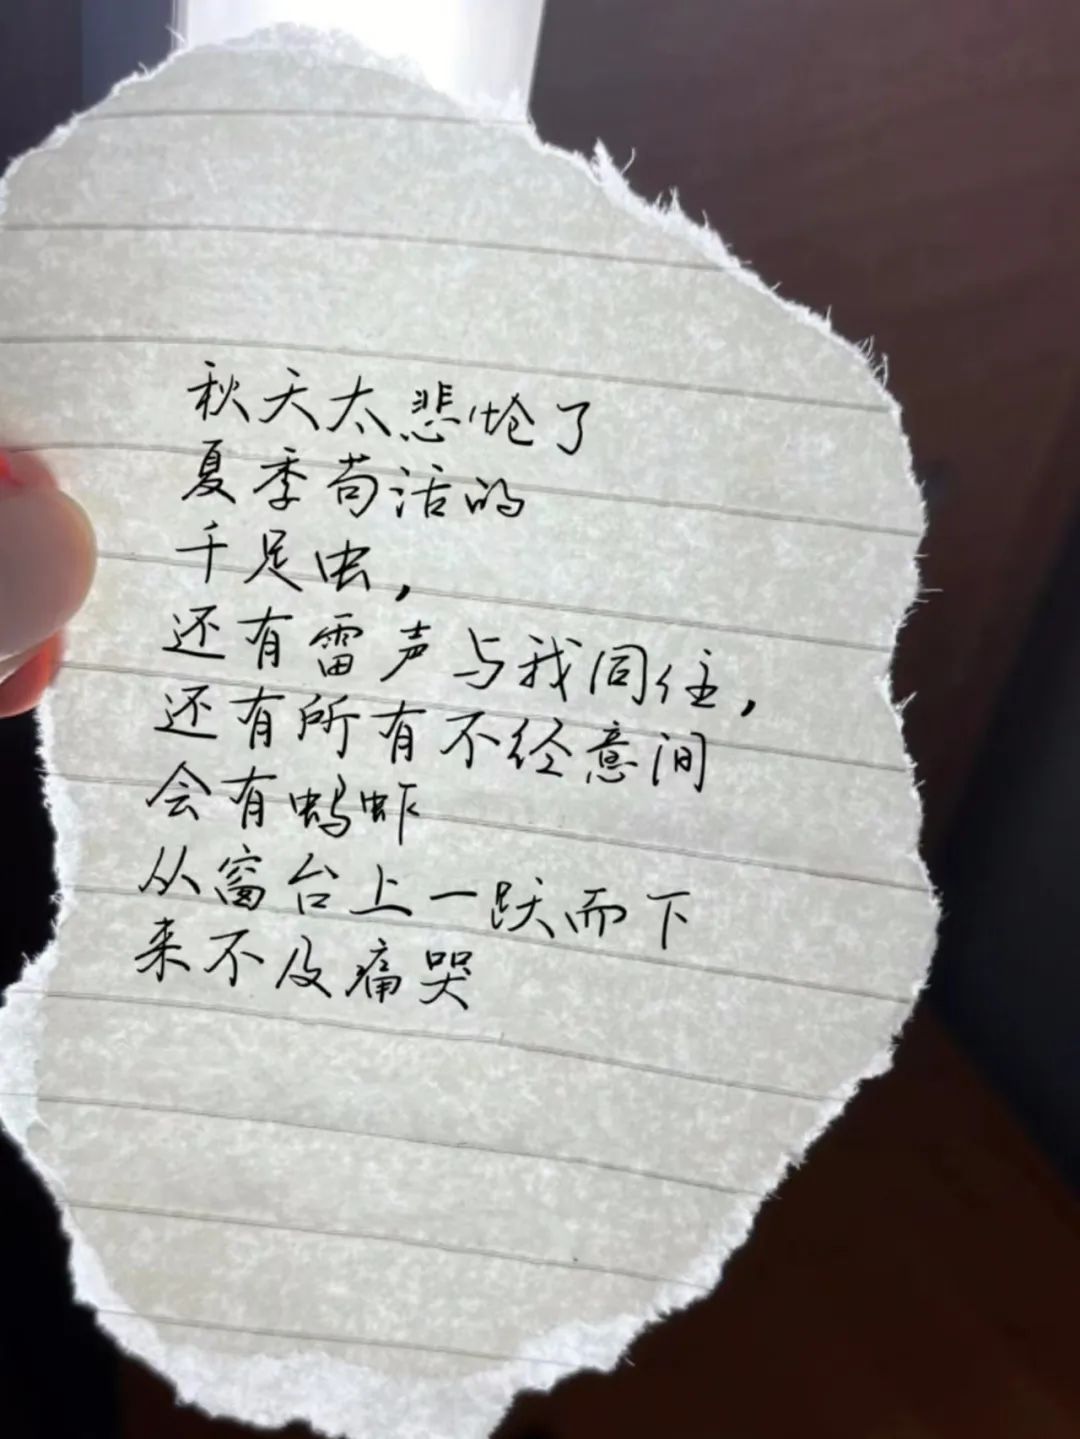 秋天太悲怆了
夏季苟活的
千足虫，
还有雷声与我同住，
还有所有不经意间
会有蚂蚱
从窗台上一跃而下
来不及痛哭